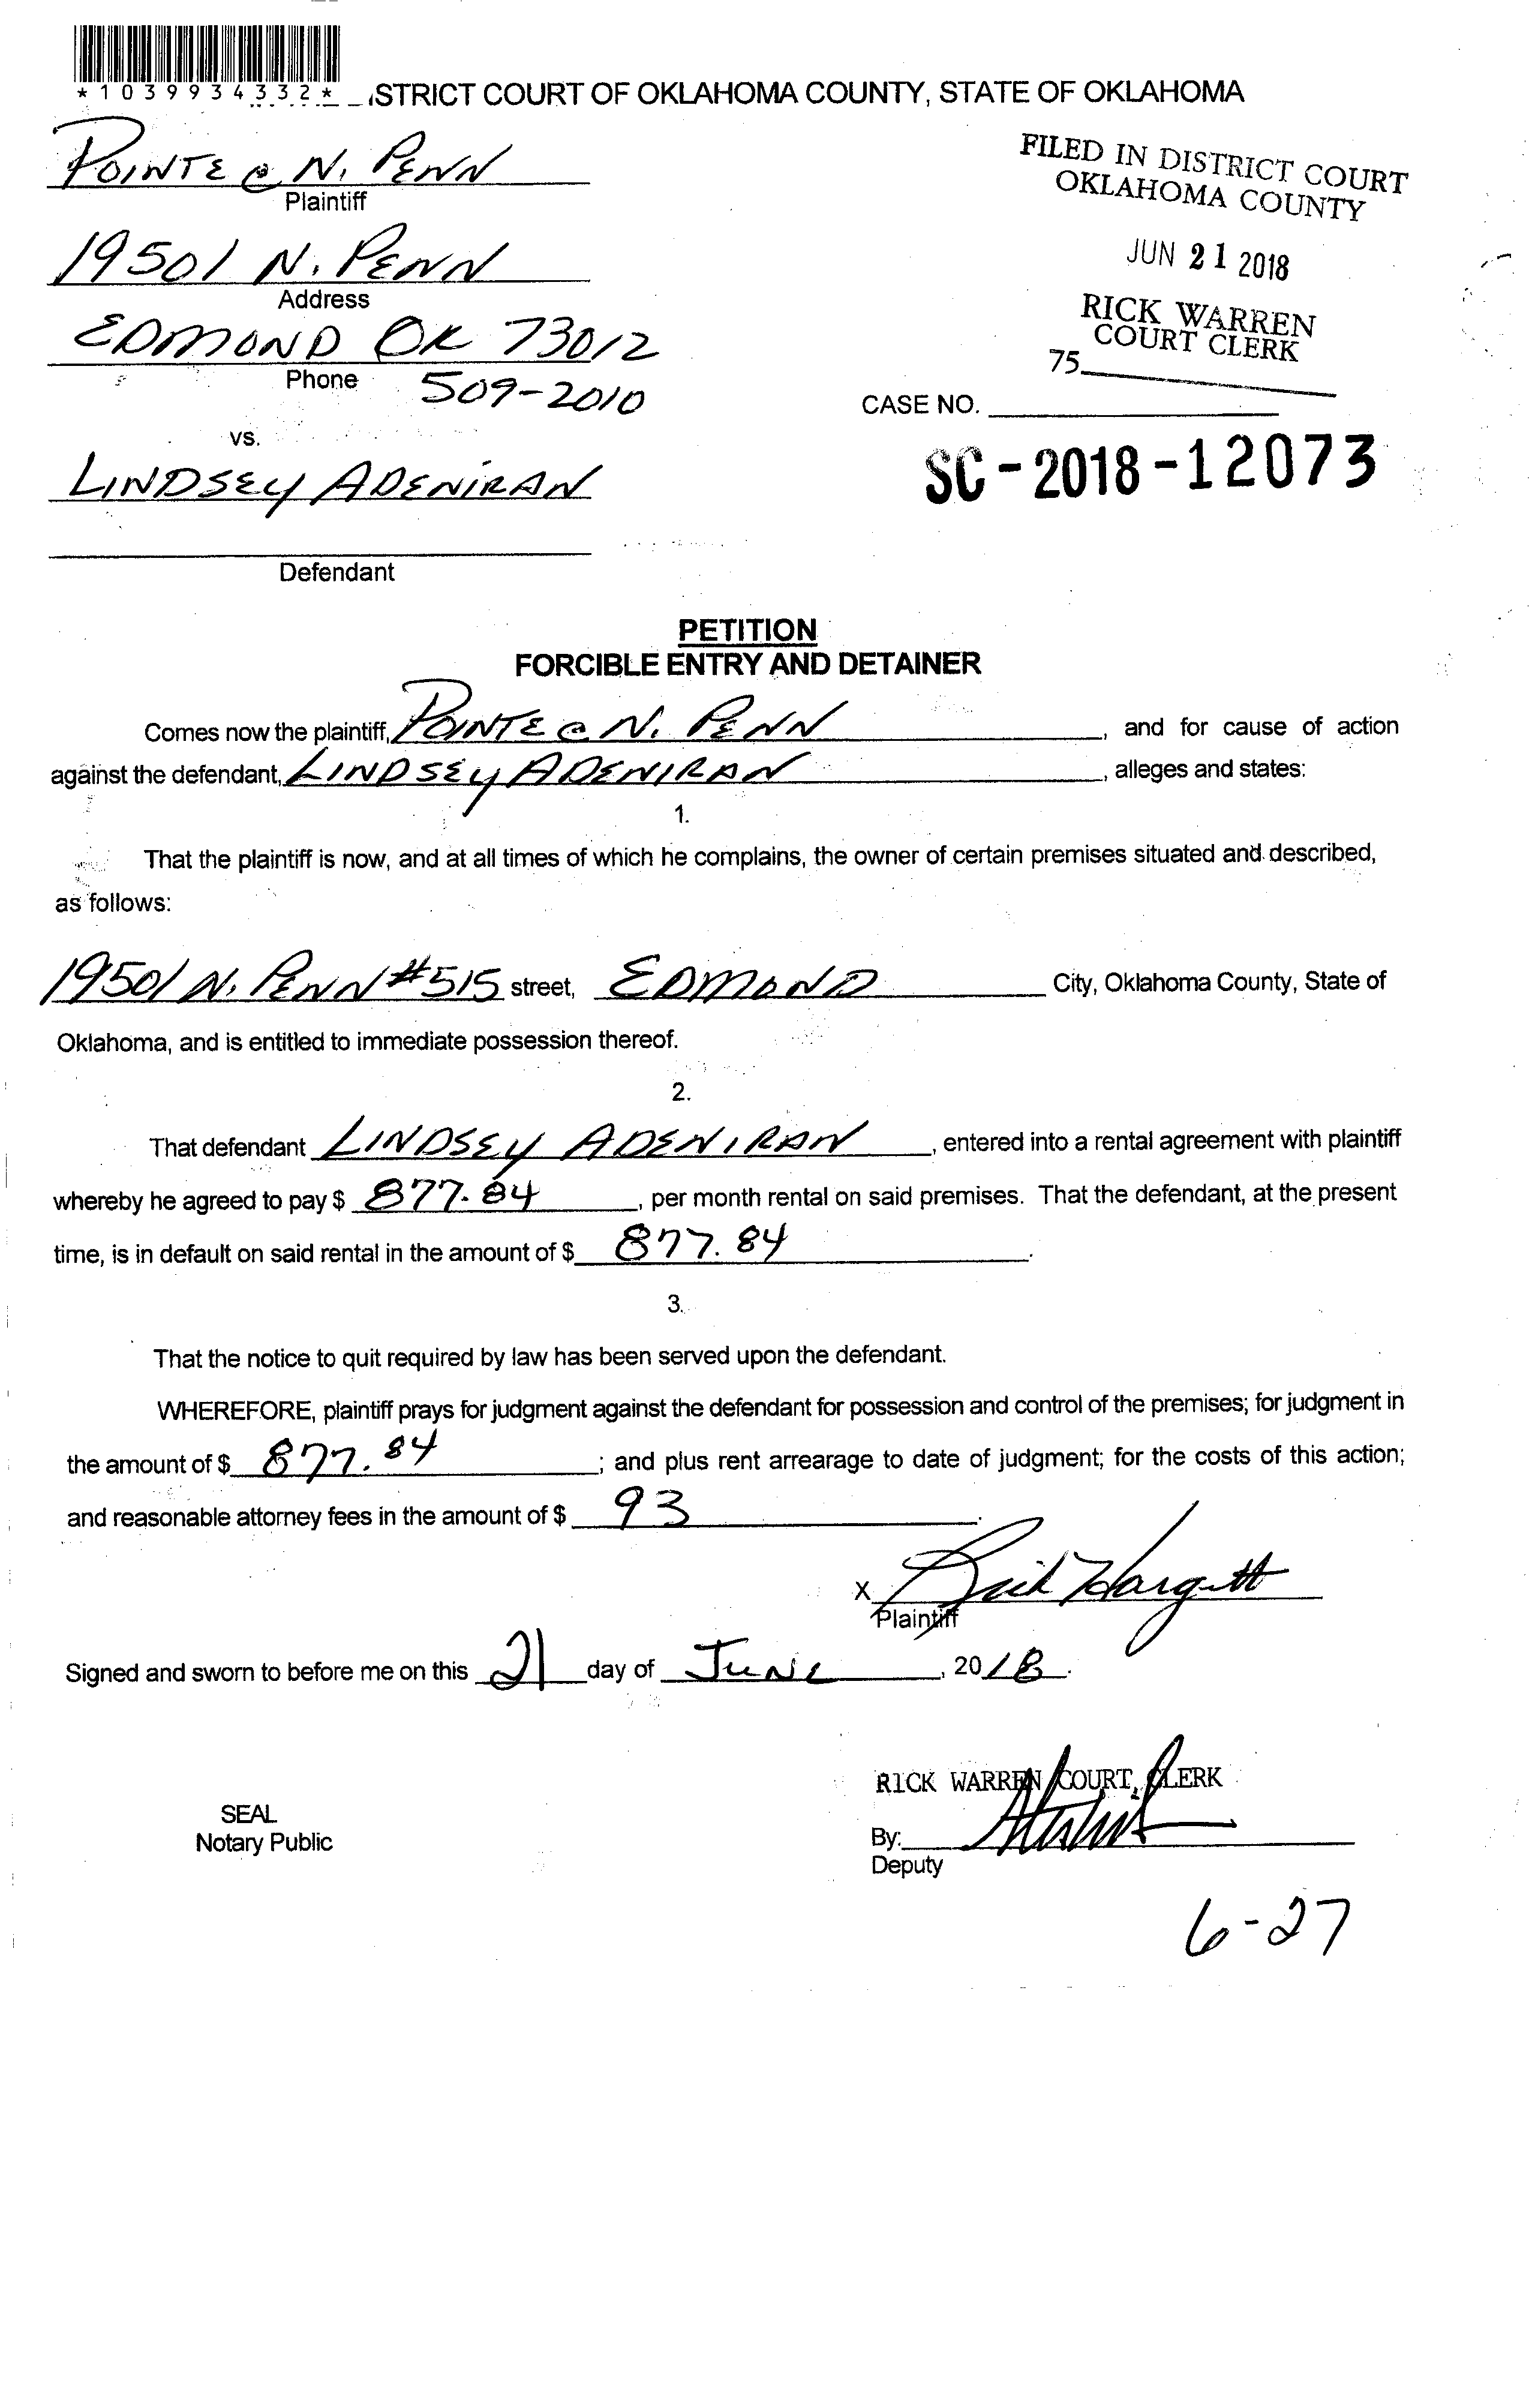 *1039934332*
STRICT COURT OF OKLAHOMA COUNTY, STATE OF OKLAHOMA
POINTE @ N. PENN
Plaintiff
19501 N. PENN
Address
EDMOND OK 73012
Phone 509-2010
vs.
LINDSEY ADENIRAN
Defendant
FILED IN DISTRICT COURT
OKLAHOMA COUNTY
JUN 21 2018
RICK WARREN
COURT CLERK
75
CASE NO.
SC-2018-12073
PETITION
FORCIBLE ENTRY AND DETAINER
Comes now the plaintiff, POINTE @ N. PENN, and for cause of action
against the defendant, LINDSEY ADENIRAN, alleges and states:
1.
That the plaintiff is now, and at all times of which he complains, the owner of certain premises situated and described,
as follows:
19501 N. PENN #515 street, EDMOND City, Oklahoma County, State of
Oklahoma, and is entitled to immediate possession thereof.
2.
That defendant LINDSEY ADENIRAN, entered into a rental agreement with plaintiff
whereby he agreed to pay $ 877.84, per month rental on said premises. That the defendant, at the present
time, is in default on said rental in the amount of $ 877.84.
3.
That the notice to quit required by law has been served upon the defendant.
WHEREFORE, plaintiff prays for judgment against the defendant for possession and control of the premises; for judgment in
the amount of $ 877.84; and plus rent arrearage to date of judgment; for the costs of this action;
and reasonable attorney fees in the amount of $ 93.
X Hargett
Plaintiff
Signed and sworn to before me on this 21 day of June, 2018.
RICK WARREN COURT CLERK
SEAL
Notary Public
By:
Deputy
6-27